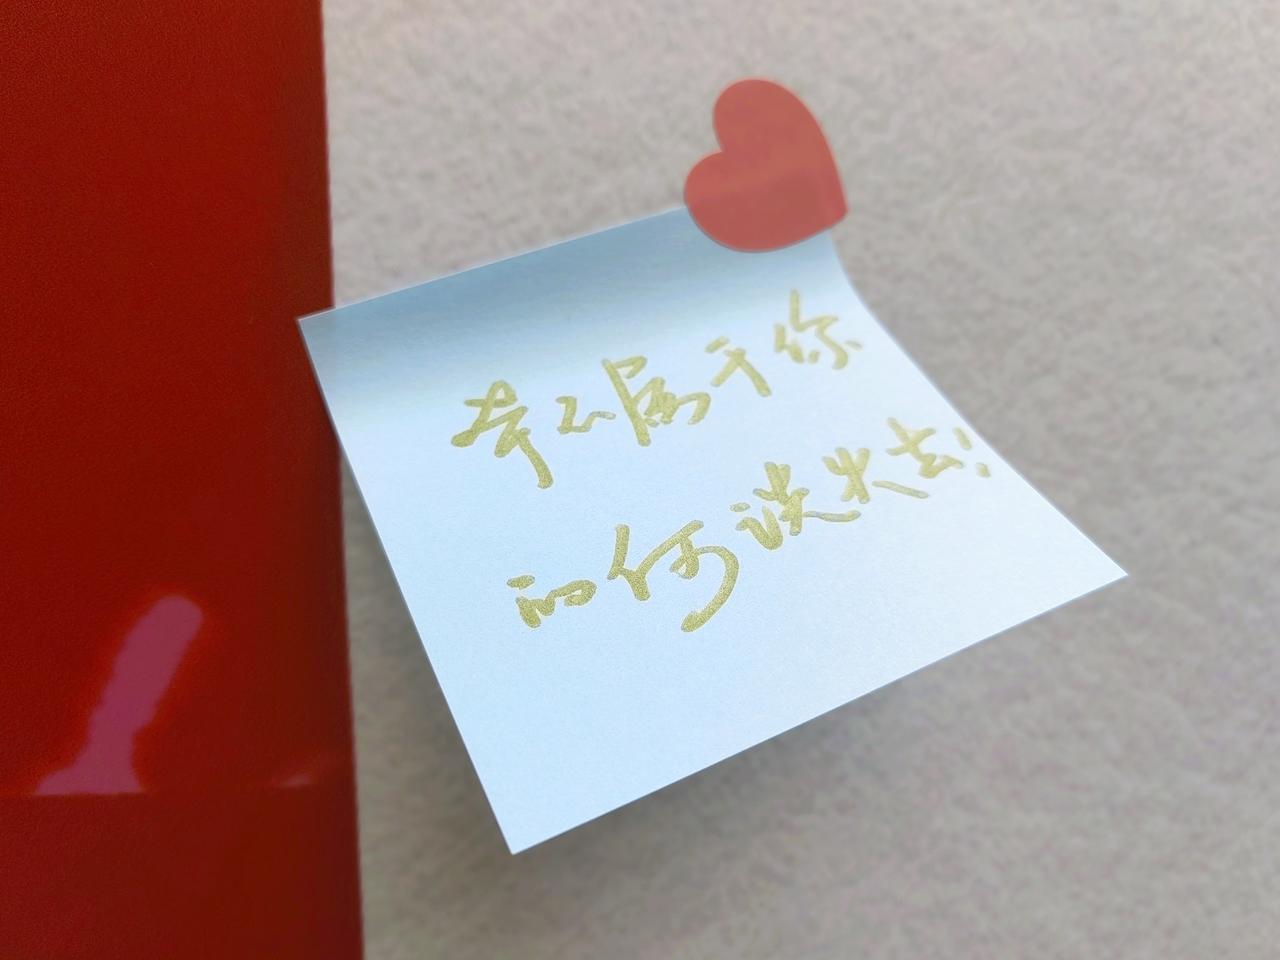 幸不属于你
如何谈失去!